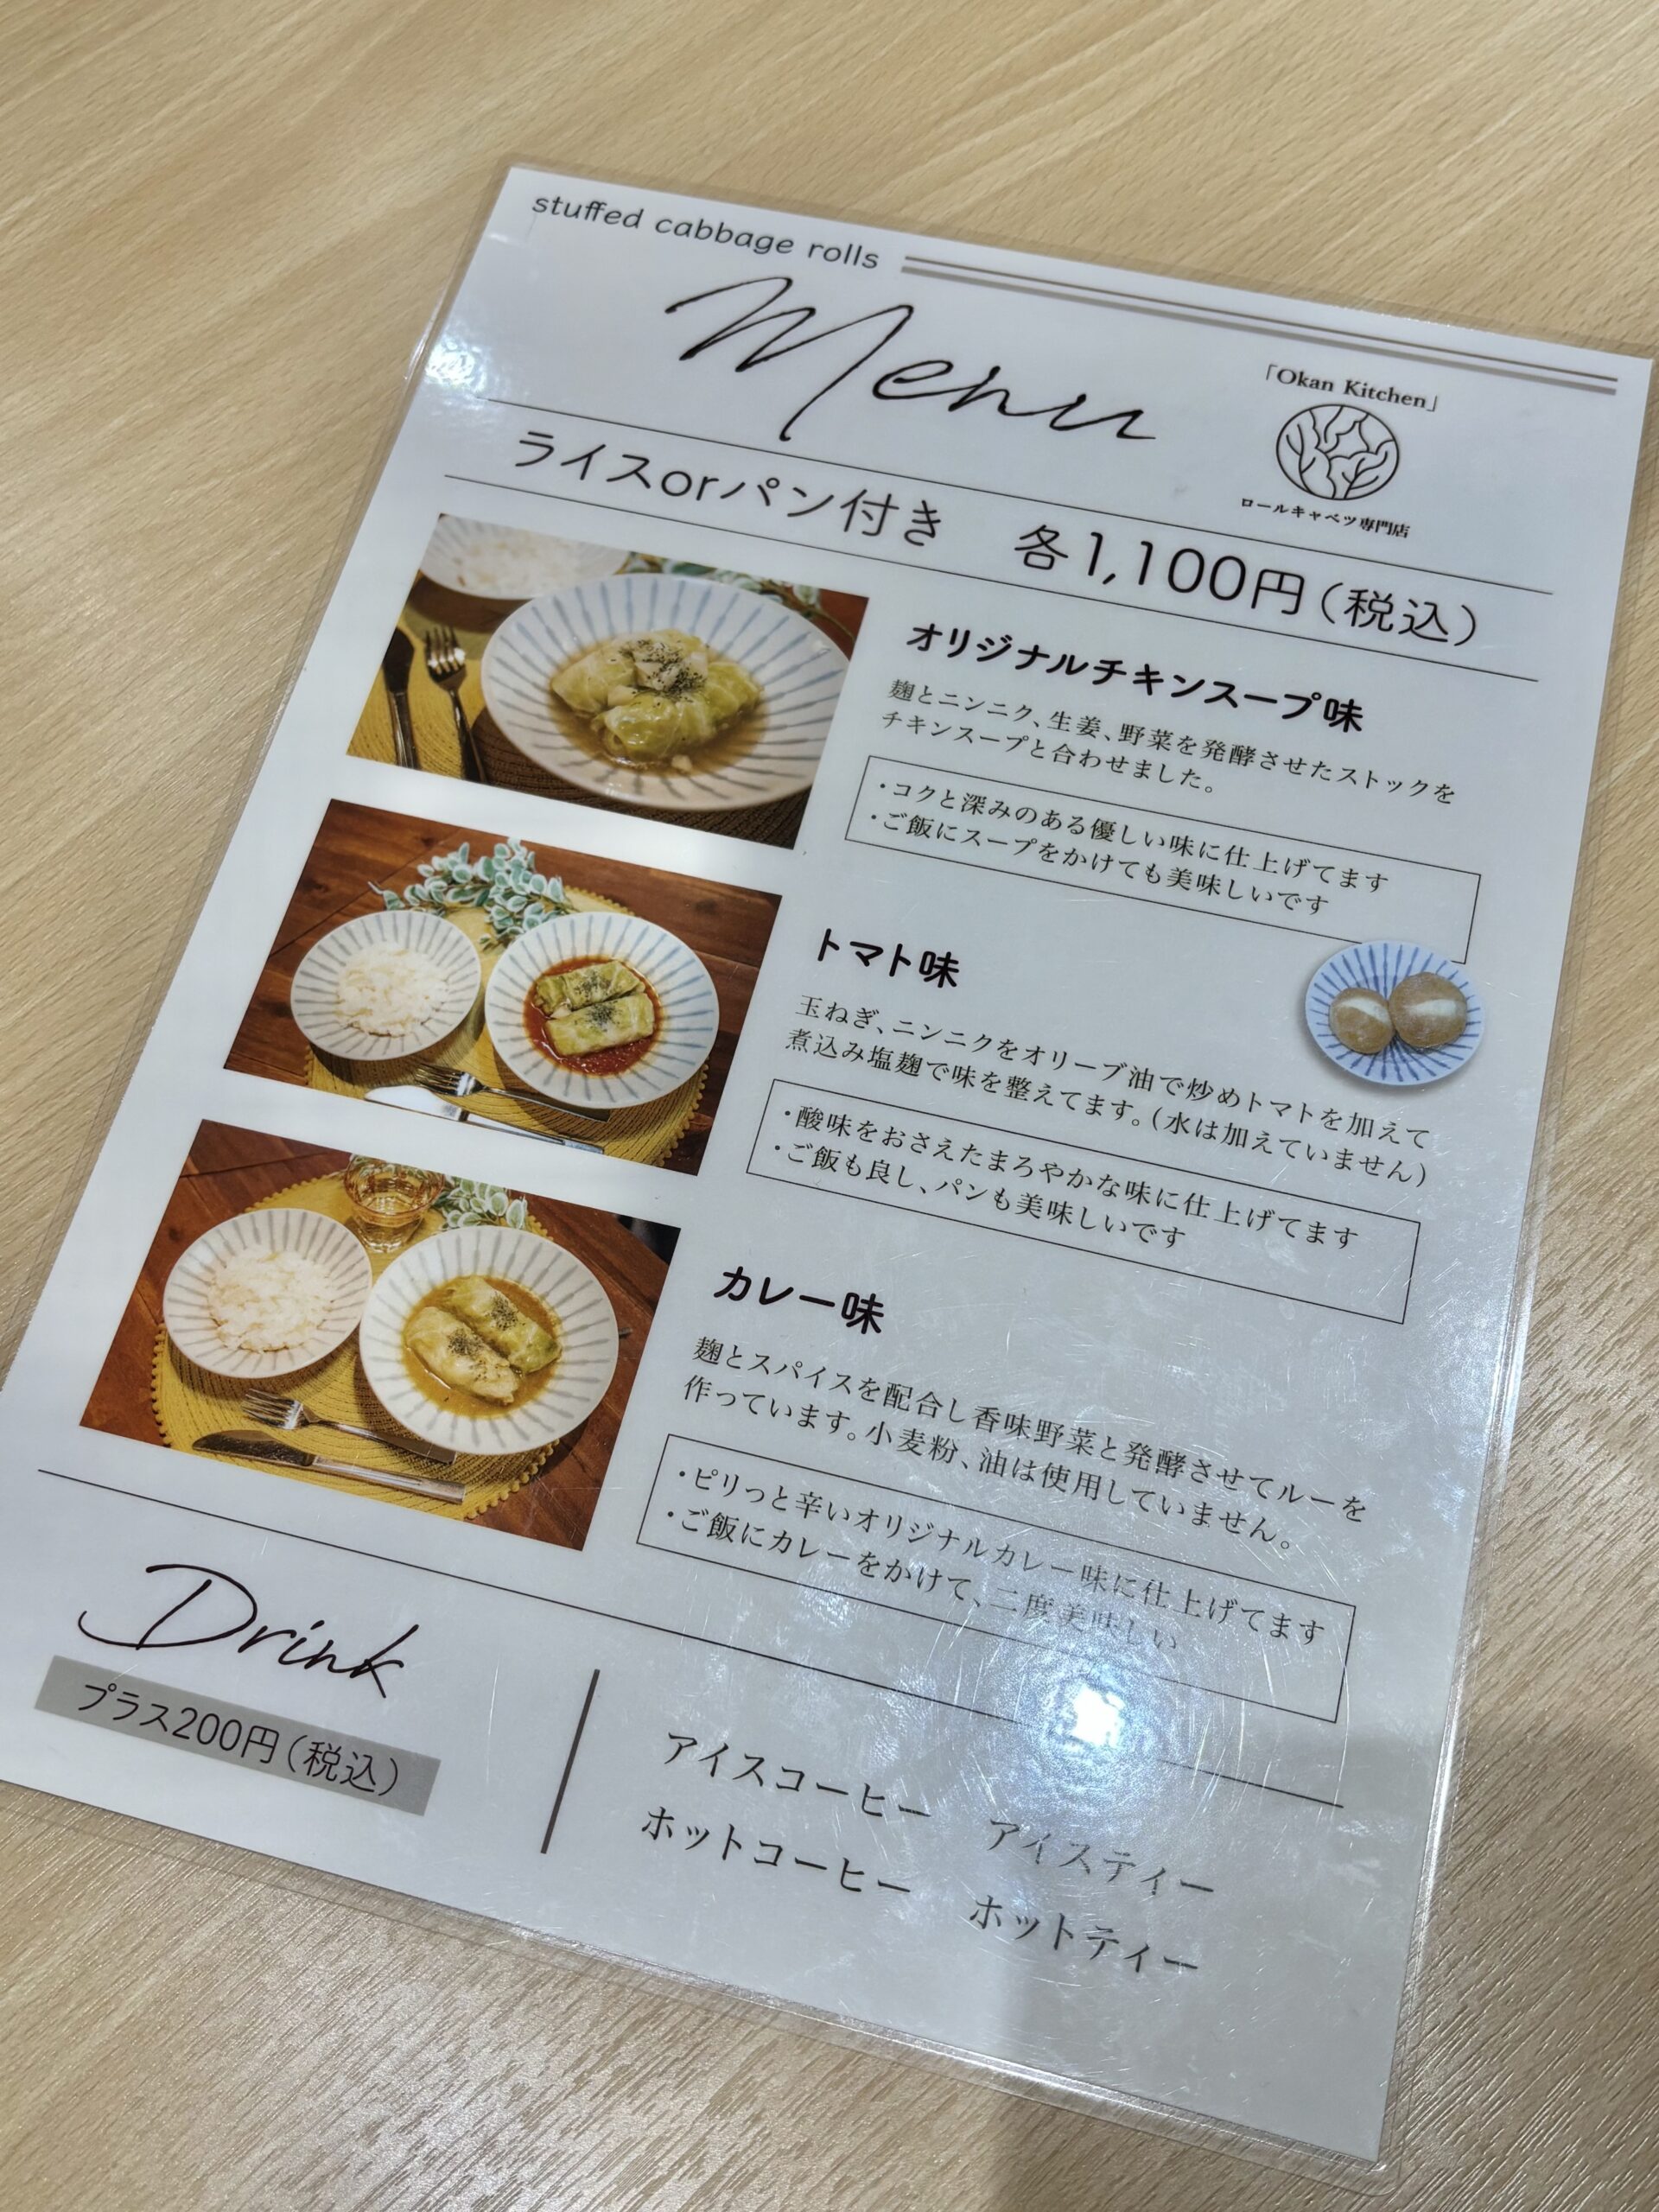 stuffed cabbage rolls
Menu
「Okan Kitchen」
ロールキャベツ専門店
ライスorパン付き　各1,100円（税込）
オリジナルチキンスープ味
麹とニンニク、生姜、野菜を発酵させたストックを
チキンスープと合わせました。
・コクと深みのある優しい味に仕上げてます
・ご飯にスープをかけても美味しいです
トマト味
玉ねぎ、ニンニクをオリーブ油で炒めトマトを加えて
煮込み塩麹で味を整えてます。（水は加えていません）
・酸味をおさえたまろやかな味に仕上げてます
・ご飯も良し、パンも美味しいです
カレー味
麹とスパイスを配合し香味野菜と発酵させてルーを
作っています。小麦粉、油は使用していません。
・ピリっと辛いオリジナルカレー味に仕上げてます
・ご飯にカレーをかけて、二度美味しい
Drink
プラス200円（税込）
アイスコーヒー　アイスティー
ホットコーヒー　ホットティー